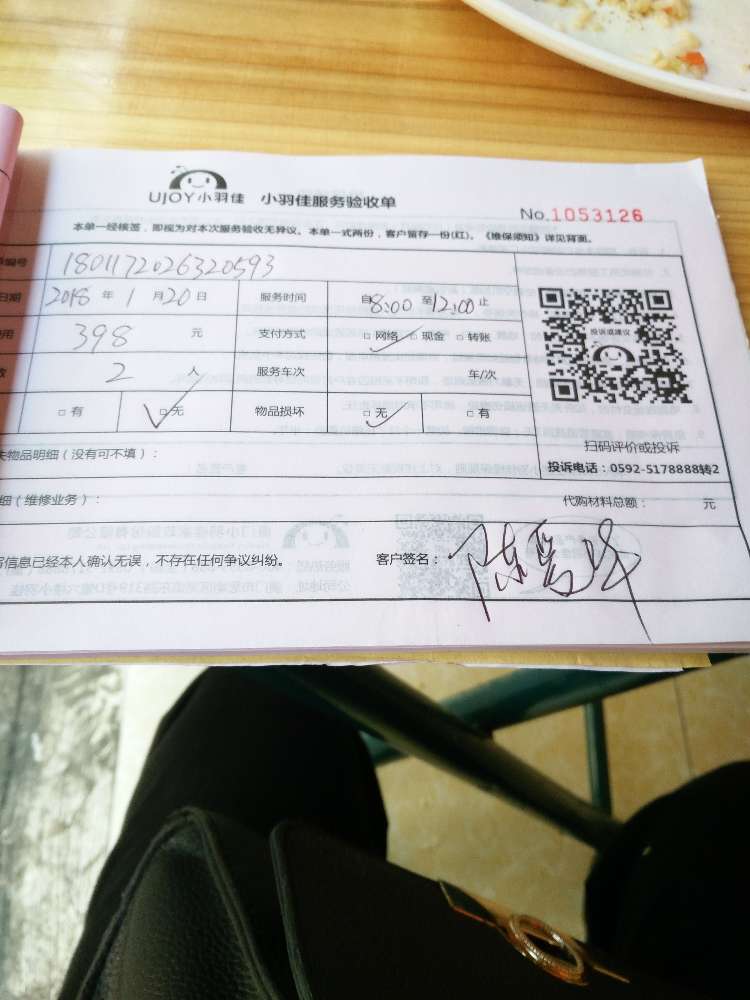 UJOY小羽佳 小羽佳服务验收单
No.1053126
本单一经核签，即视为对本次服务验收无异议。本单一式两份，客户留存一份(红)。《维保须知》详见背面。
编号 1801172026320593
日期 2018 年 1 月 20 日 服务时间 自8:00 至12:00 止
用 398 元 支付方式 □ 网络 □ 现金 □ 转账
2 人 服务车次 车/次
□ 有 □ 无 物品损坏 □ 无 □ 有
投诉或建议
扫码评价或投诉
投诉电话：0592-5178888转2
失物品明细（没有可不填）：
细（维修业务）： 代购材料总额： 元
写信息已经本人确认无误，不存在任何争议纠纷。 客户签名：